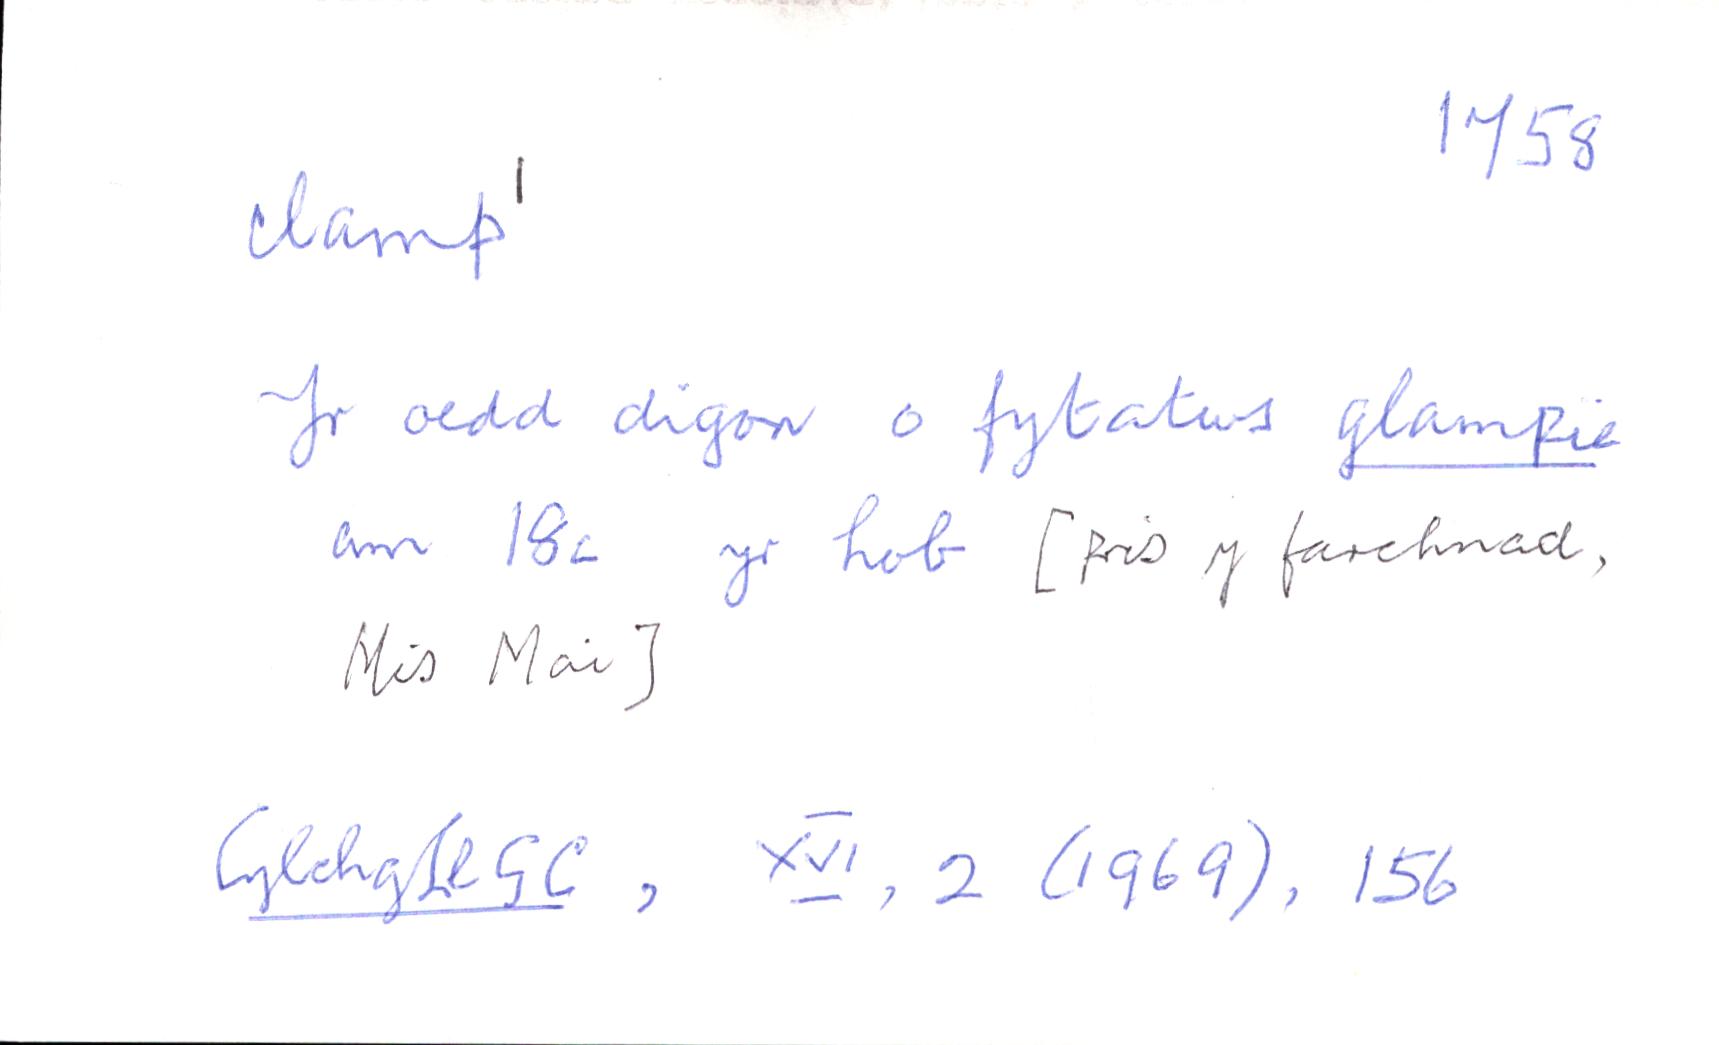 1758
clamp¹
Yr oedd digon o fytatws glampie
am 18c yr hob [pris y farchnad,
Mis Mai]
CylchgLlGC, XVI, 2 (1969), 156